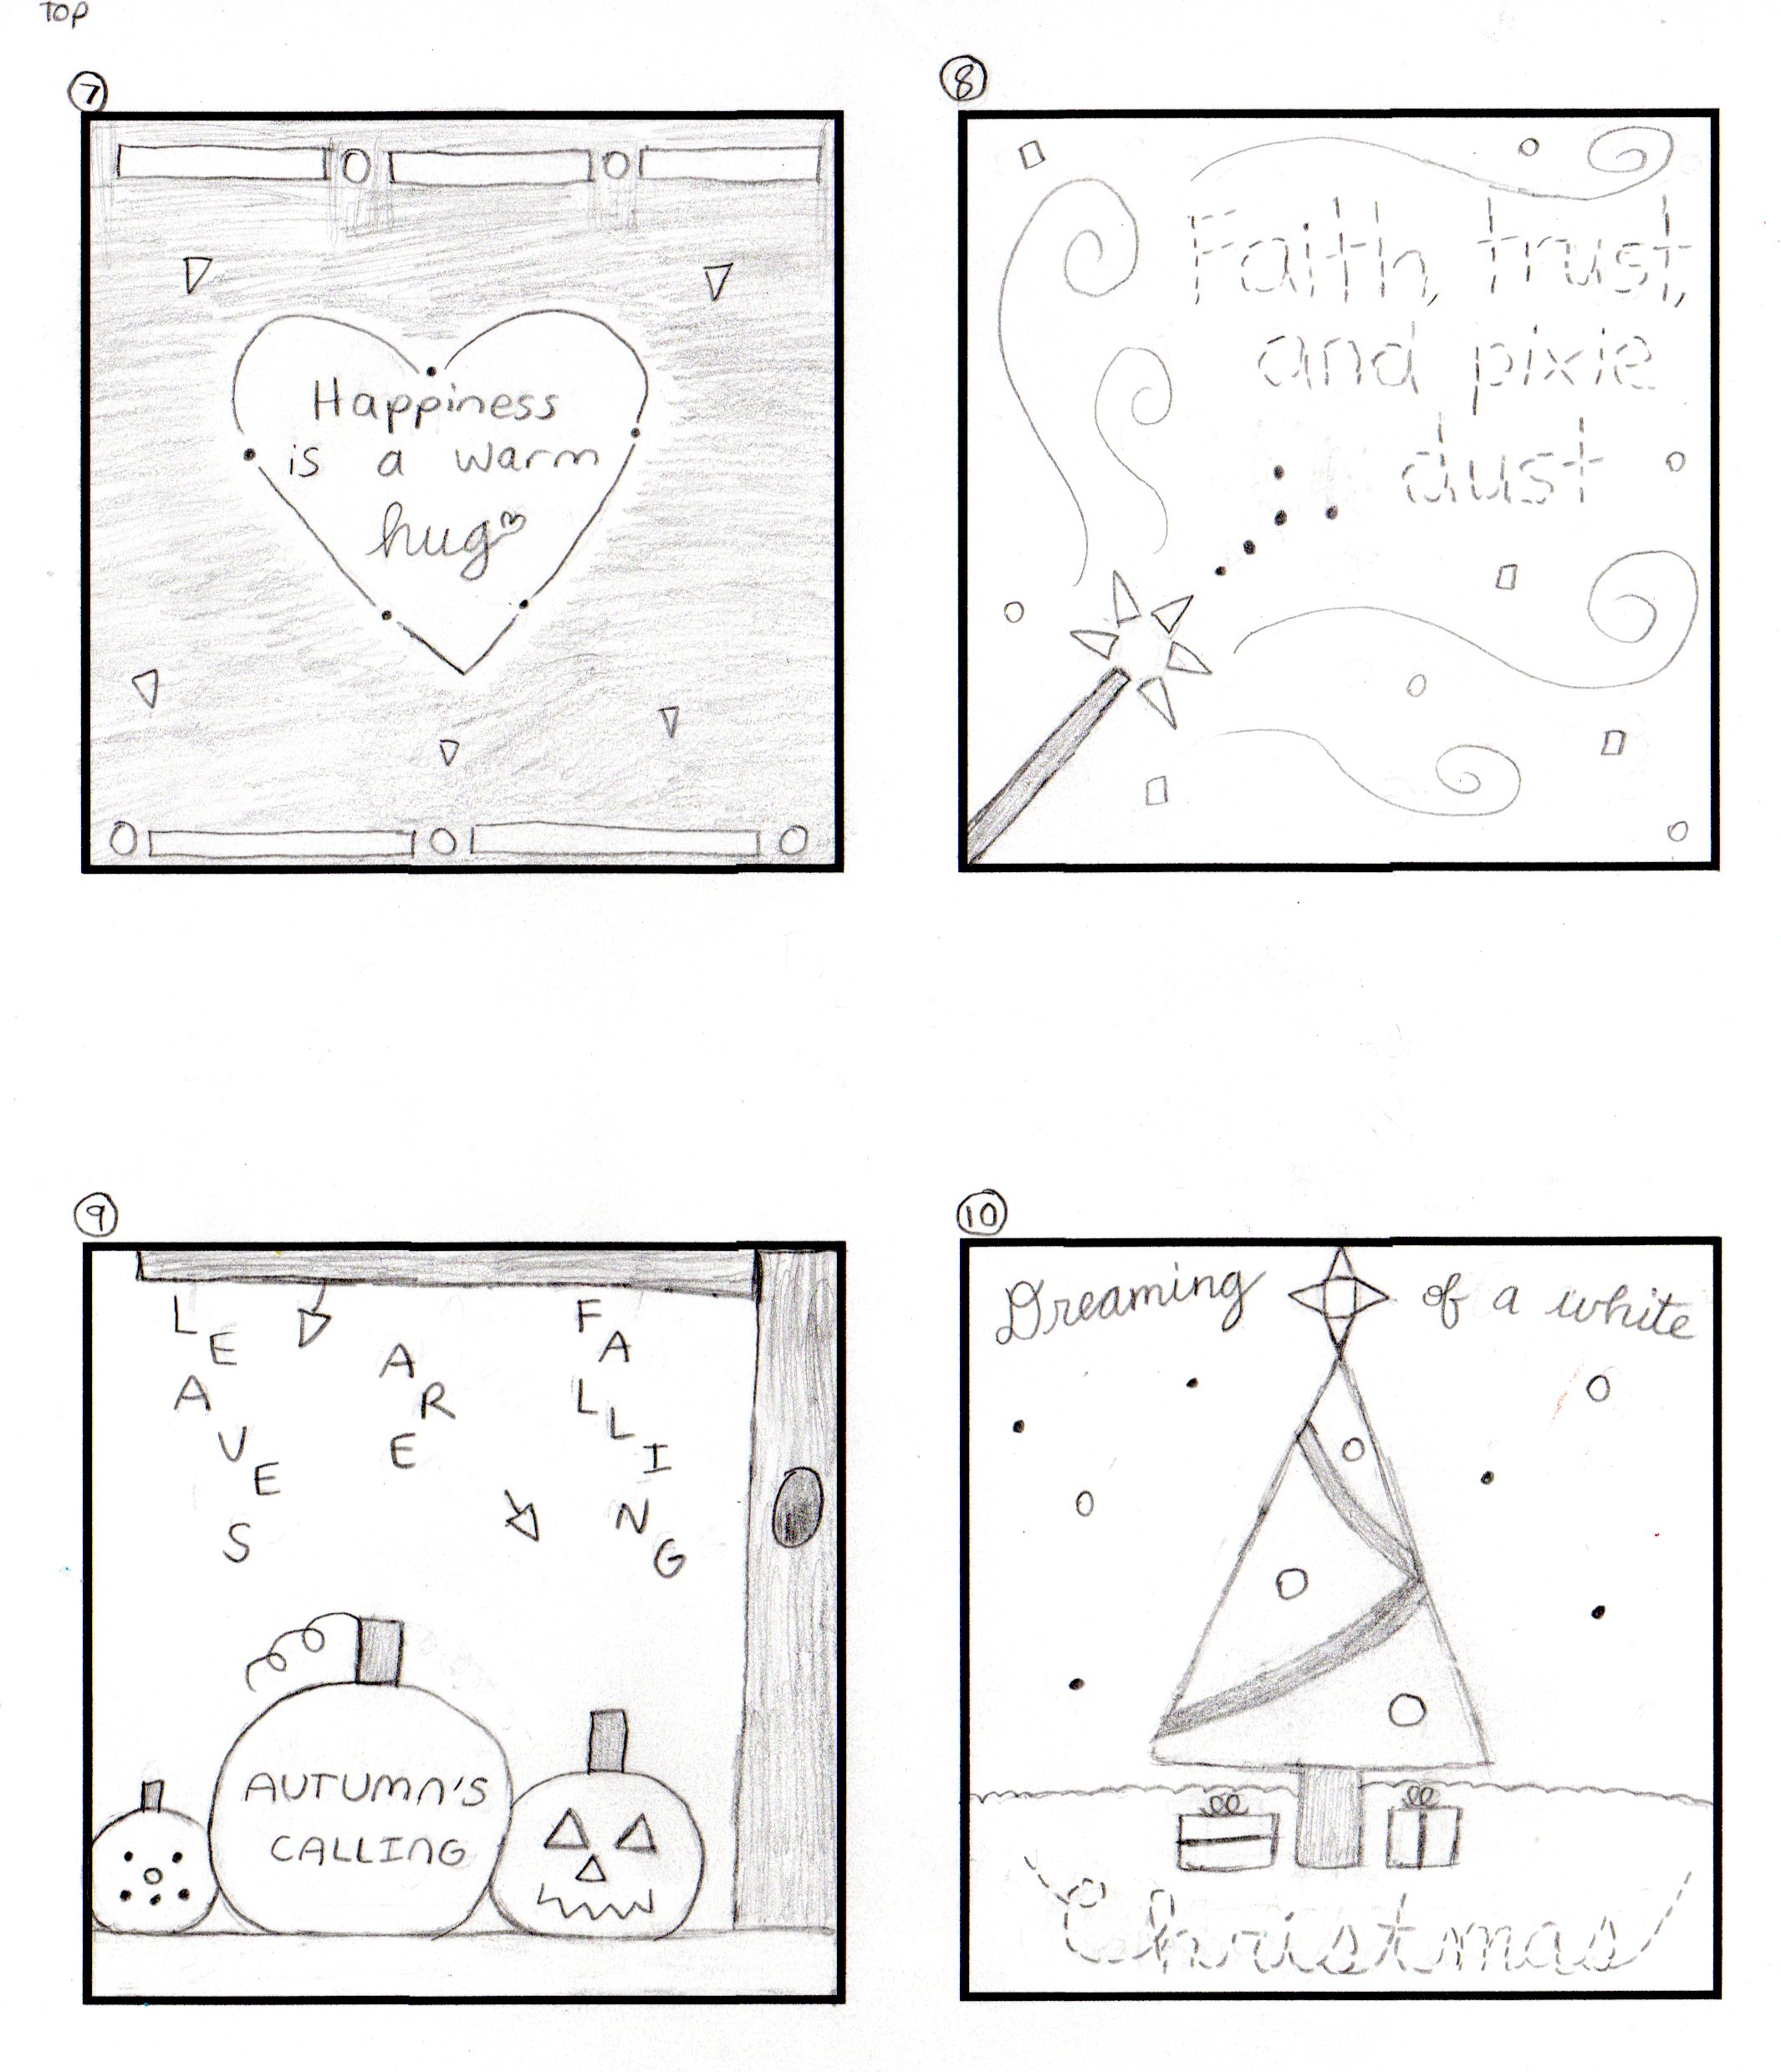 TOP
7
Happiness
is a warm
hug
8
Faith, trust,
and pixie
dust
9
LEAVES ARE FALLING
AUTUMN'S
CALLING
10
Dreaming of a white
Christmas